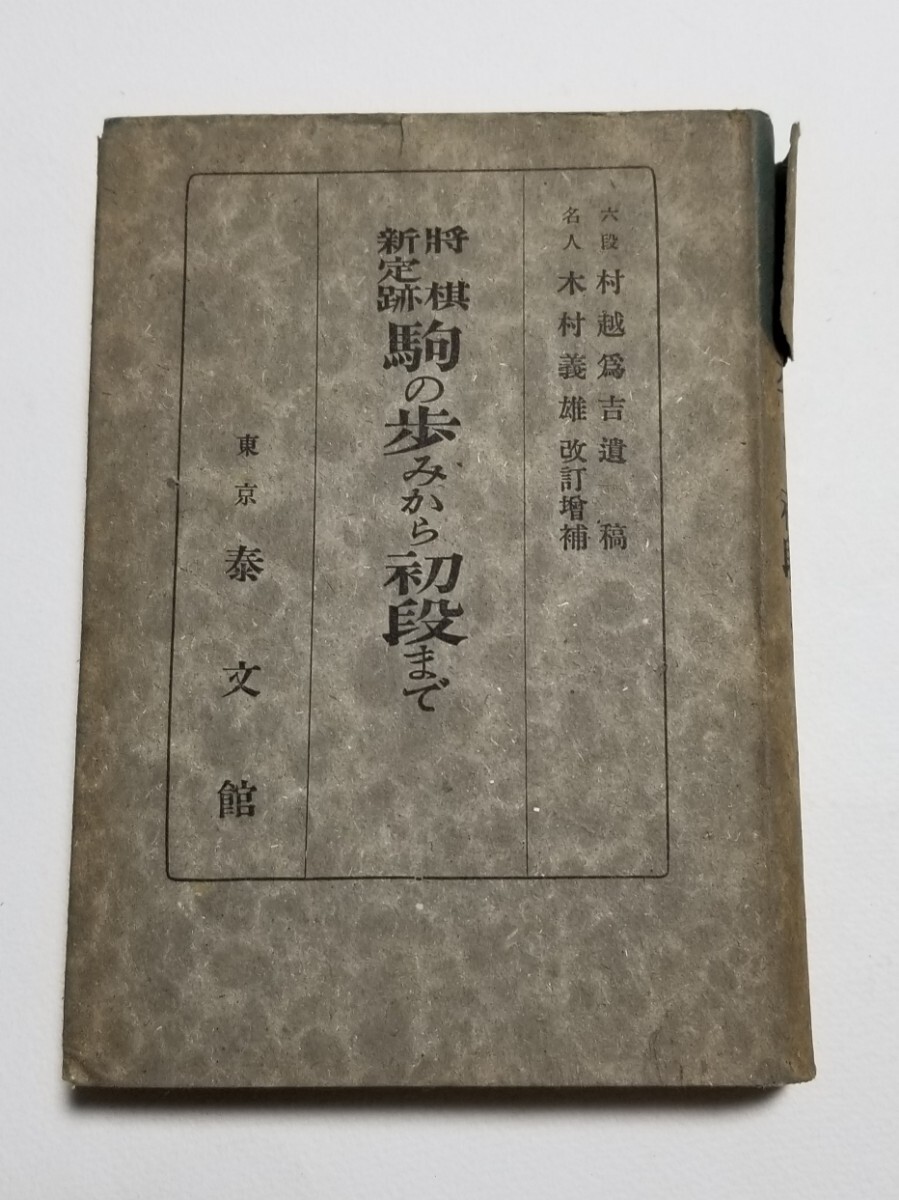 六段 村越爲吉 遺稿
名人 木村義雄 改訂增補
將棋
新定跡
駒の歩みから初段まで
東京 泰文館